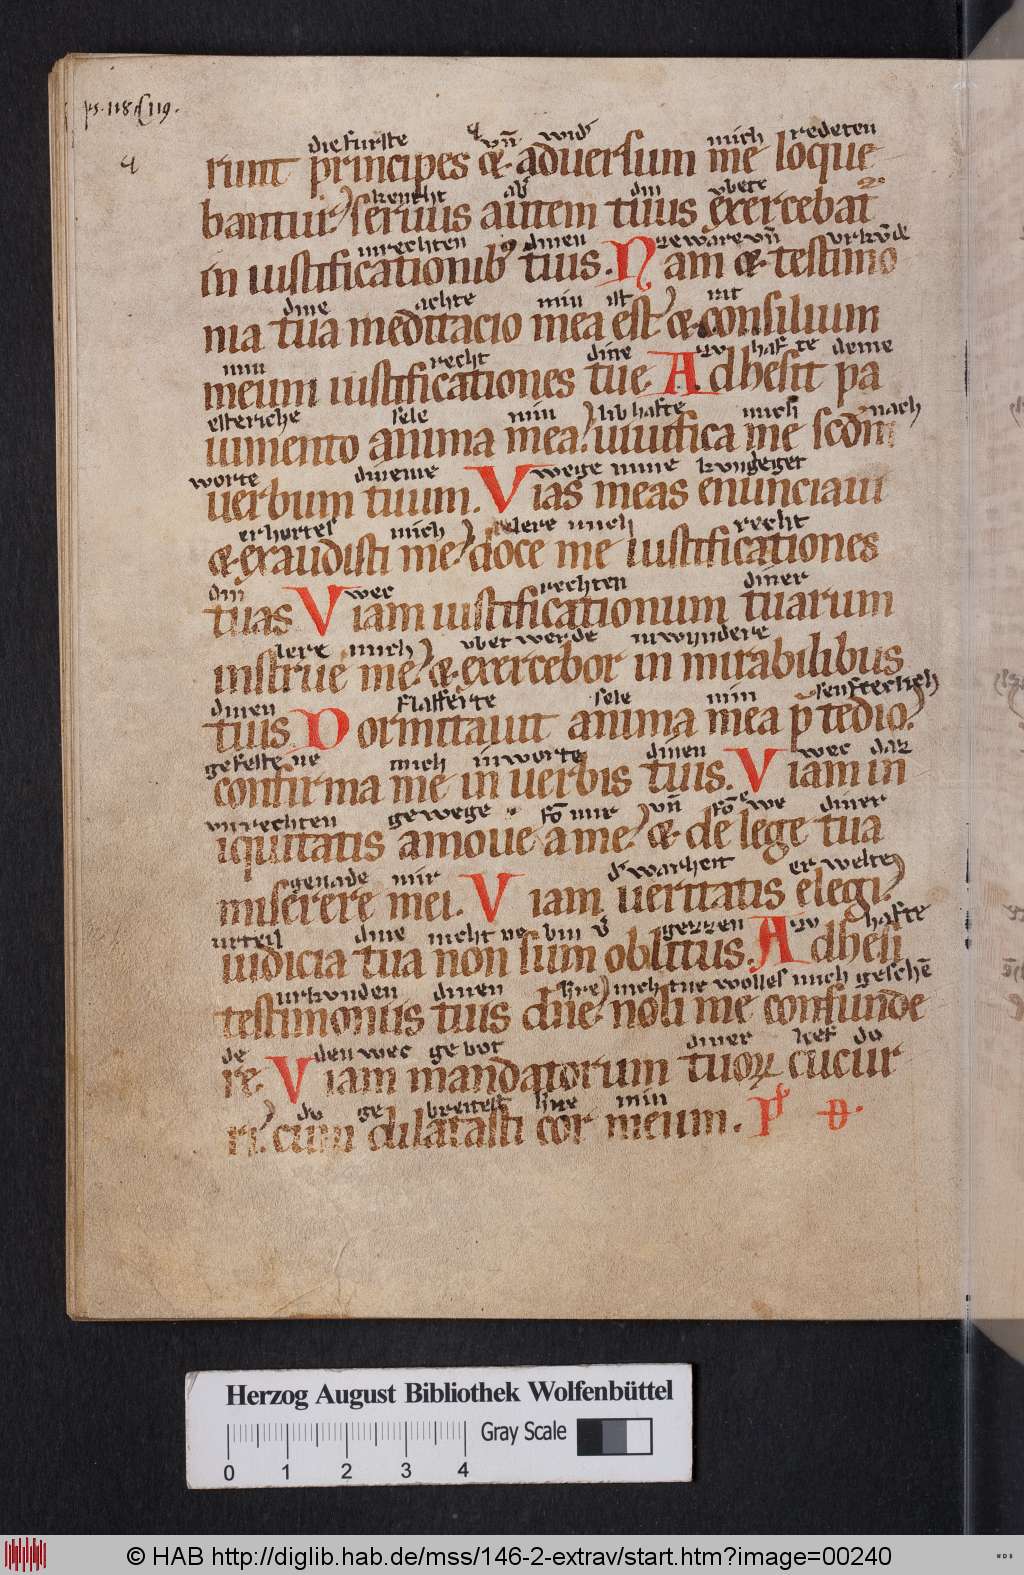 ps. 118 119.
die furste vn̄ wid' mich redeten
runt principes & aduersum me loque
knecht ab' din vbete
bantur seruus autem tuus exercebat͛
in rechten dinen
in iustificationib9 tuis. Nam & testimo
dine achte min ist rit
nia tua meditacio mea est & consilium
min recht dine haf te deme
meum iustificationes tue. Adhesit pa
esteriche sele min libhafte mich nach
uimento anima mea uiuifica me scd̄m
worte dineme wege mine kvndeget
uerbum tuum. Vias meas enunciaui
erhortes mich lere mich recht
& exaudisti me doce me iustificationes
din wec rechten diner
tuas Viam iustificationum tuarum
lere mich vbet werde in wndere
instrue me & exercebor in mirabilibus
dinen slafferte sele min senftecheh
tuis. Dormitauit anima mea p̄ tedio
gefeste ne mich in worte dinen wec daz
confirma me in uerbis tuis. Viam in
vnrechten gewege fō mir vn̄ fō we diner
iquitatis amoue a me & de lege tua
genade mir d' warheit er welte
miserere mei. Viam ueritatis elegi
vrteil dine nicht ne bin v' gezzen hafte
iudicia tua non sum oblitus. Adhesi
urkvnden dinen hre nich tue wolles mich geschē
testimoniis tuis dn̄e noli me confunde
de den wec gebot diner lief do
re. Viam mandatorum tuoꝝ cucur
do ge breitest hre min
ri cum dilatasti cor meum. Ps D.
Herzog August Bibliothek Wolfenbüttel
Gray Scale
0 1 2 3 4
© HAB http://diglib.hab.de/mss/146-2-extrav/start.htm?image=00240